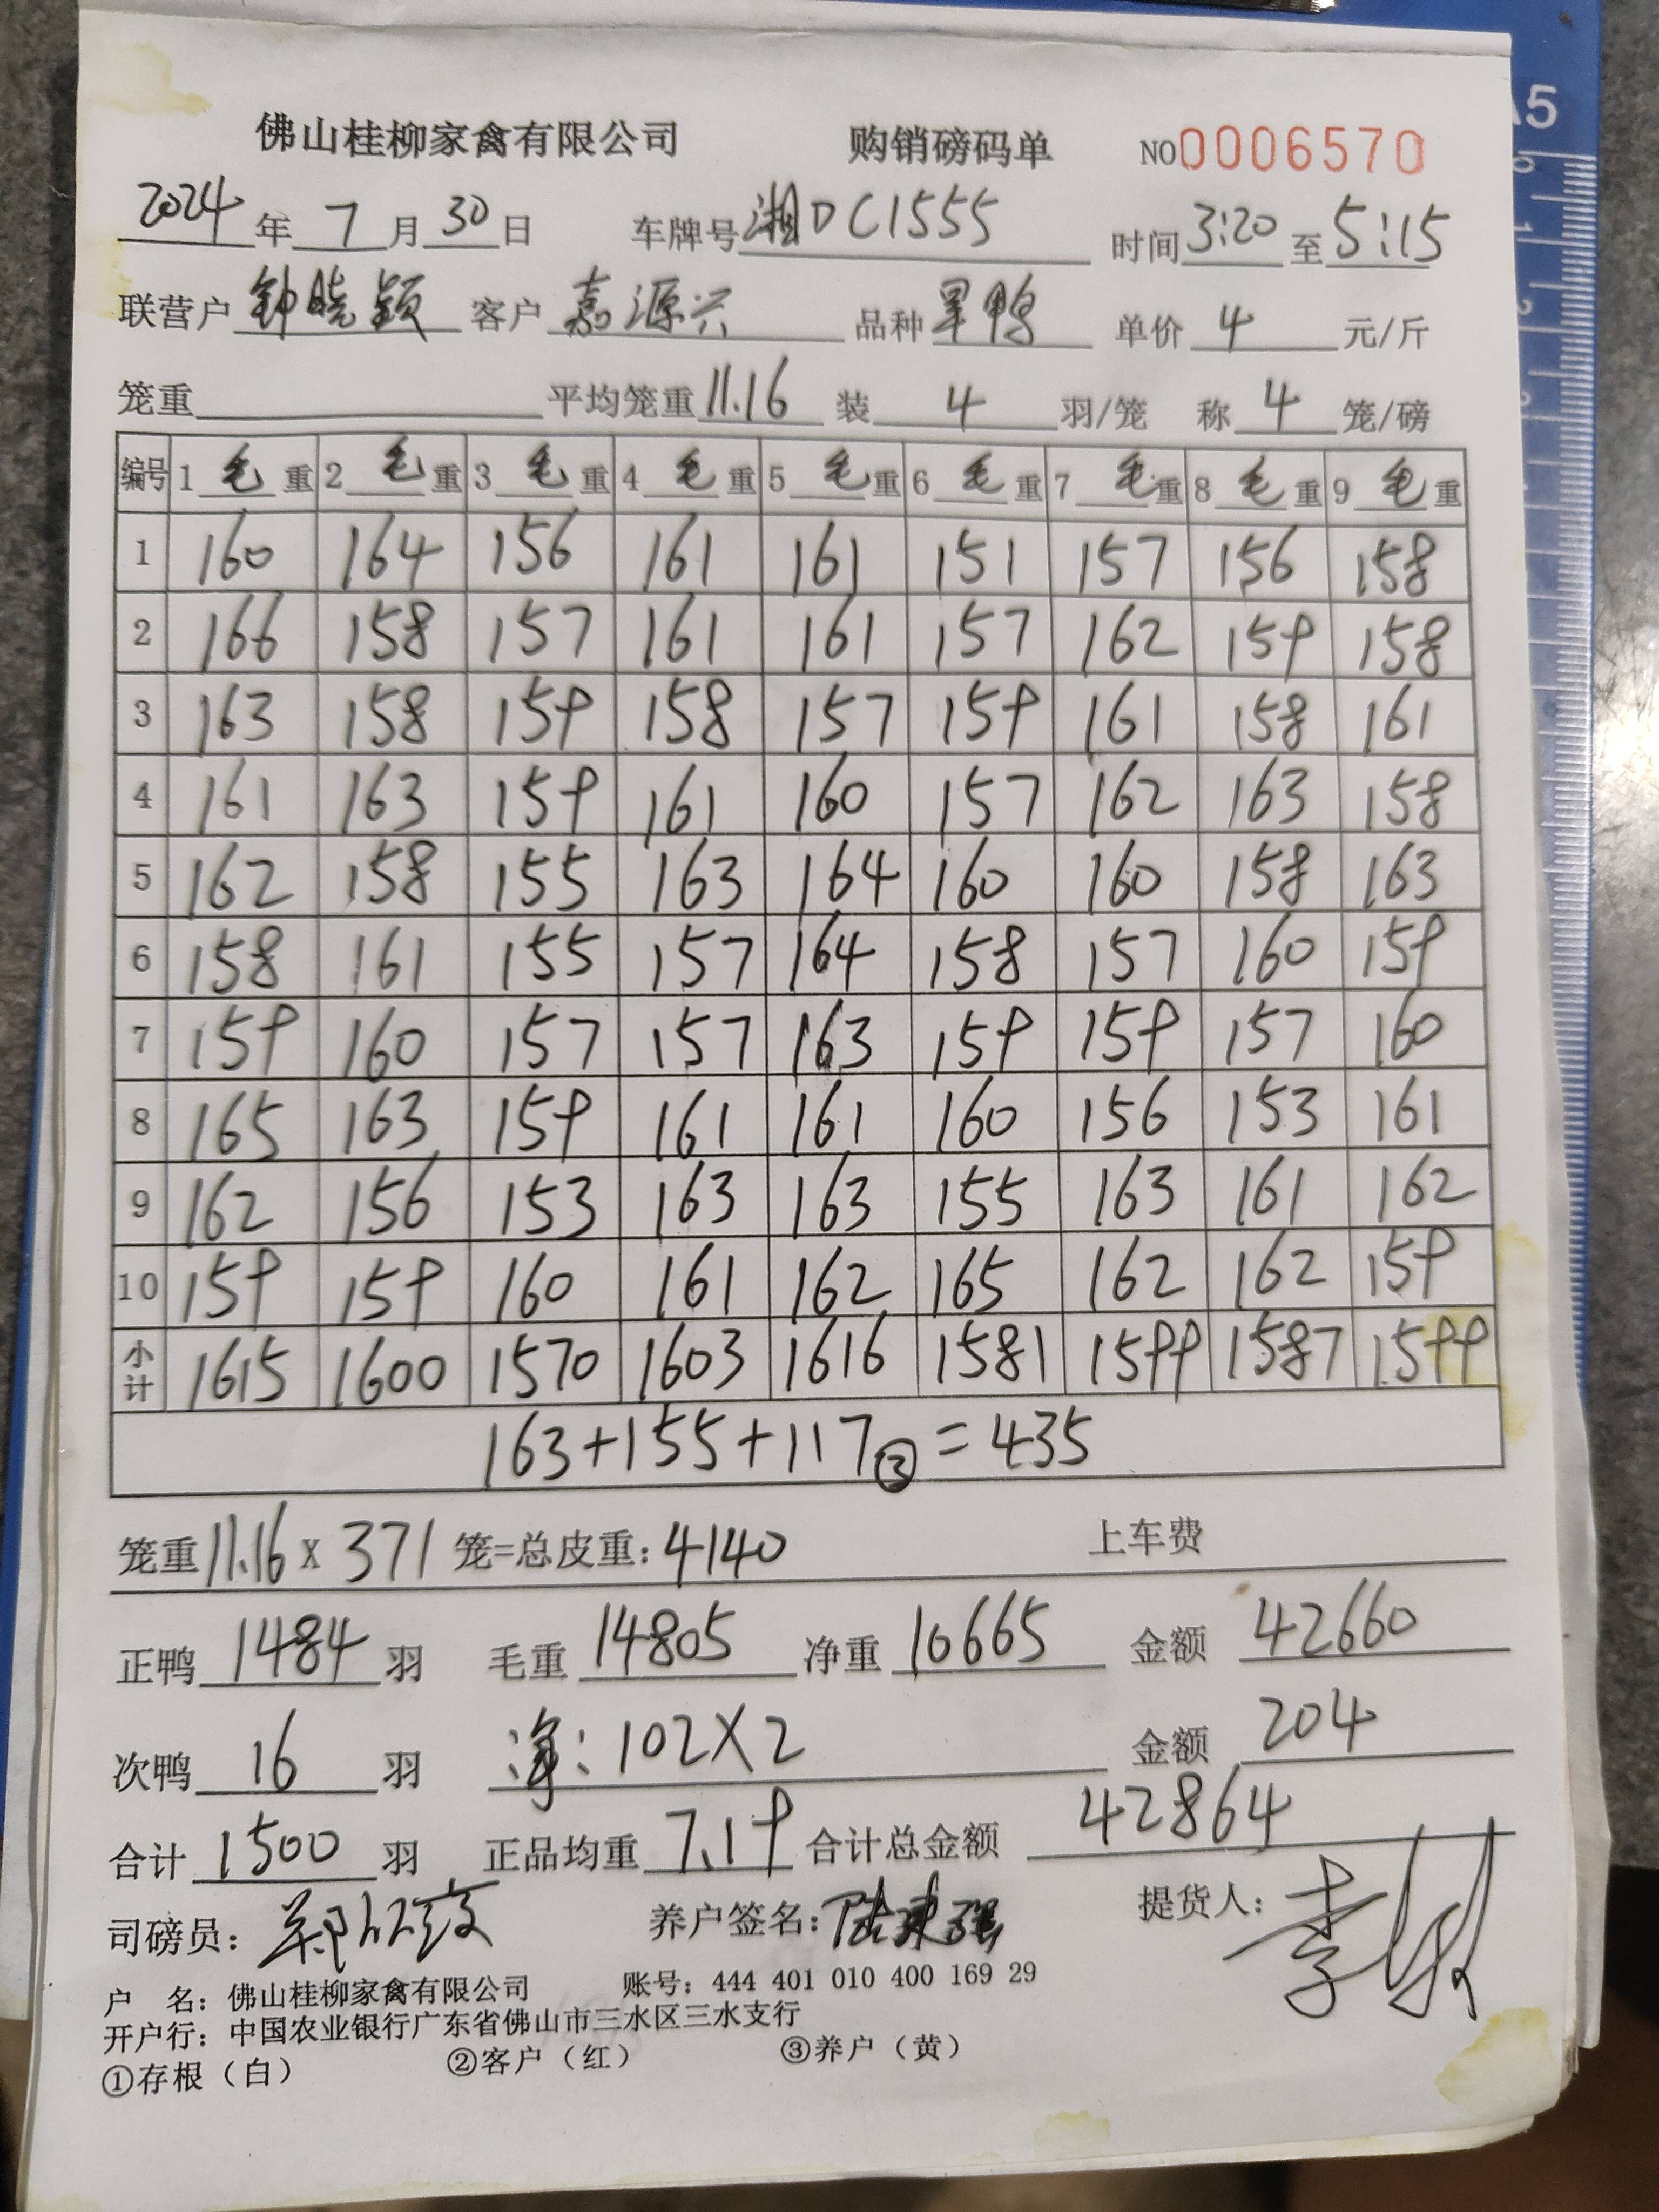 佛山桂柳家禽有限公司 购销磅码单 NO0006570
2024年7月30日 车牌号湘DC1555 时间3:20至5:15
联营户钟晓颖 客户嘉源兴 品种旱鸭 单价4元/斤
笼重 平均笼重11.16 装4羽/笼 称4笼/磅
编号 1毛重 2毛重 3毛重 4毛重 5毛重 6毛重 7毛重 8毛重 9毛重
1 160 164 156 161 161 151 157 156 158
2 166 158 157 161 161 157 162 159 158
3 163 158 159 158 157 159 161 158 161
4 161 163 159 161 160 157 162 163 158
5 162 158 155 163 164 160 160 158 163
6 158 161 155 157 164 158 157 160 159
7 159 160 157 157 163 159 159 157 160
8 165 163 159 161 161 160 156 153 161
9 162 156 153 163 163 155 163 161 162
10 159 159 160 161 162 165 162 162 159
小计 1615 1600 1570 1603 1616 1581 1599 1587 1599
163+155+117③=435
笼重11.16×371笼=总皮重:4140 上车费
正鸭1484羽 毛重14805 净重10665 金额42660
次鸭16羽 净:102×2 金额204
合计1500羽 正品均重7.19 合计总金额42864
司磅员: 养户签名: 提货人:
户 名:佛山桂柳家禽有限公司 账号:444 401 010 400 169 29
开户行:中国农业银行广东省佛山市三水区三水支行
①存根(白) ②客户(红) ③养户(黄)
A5